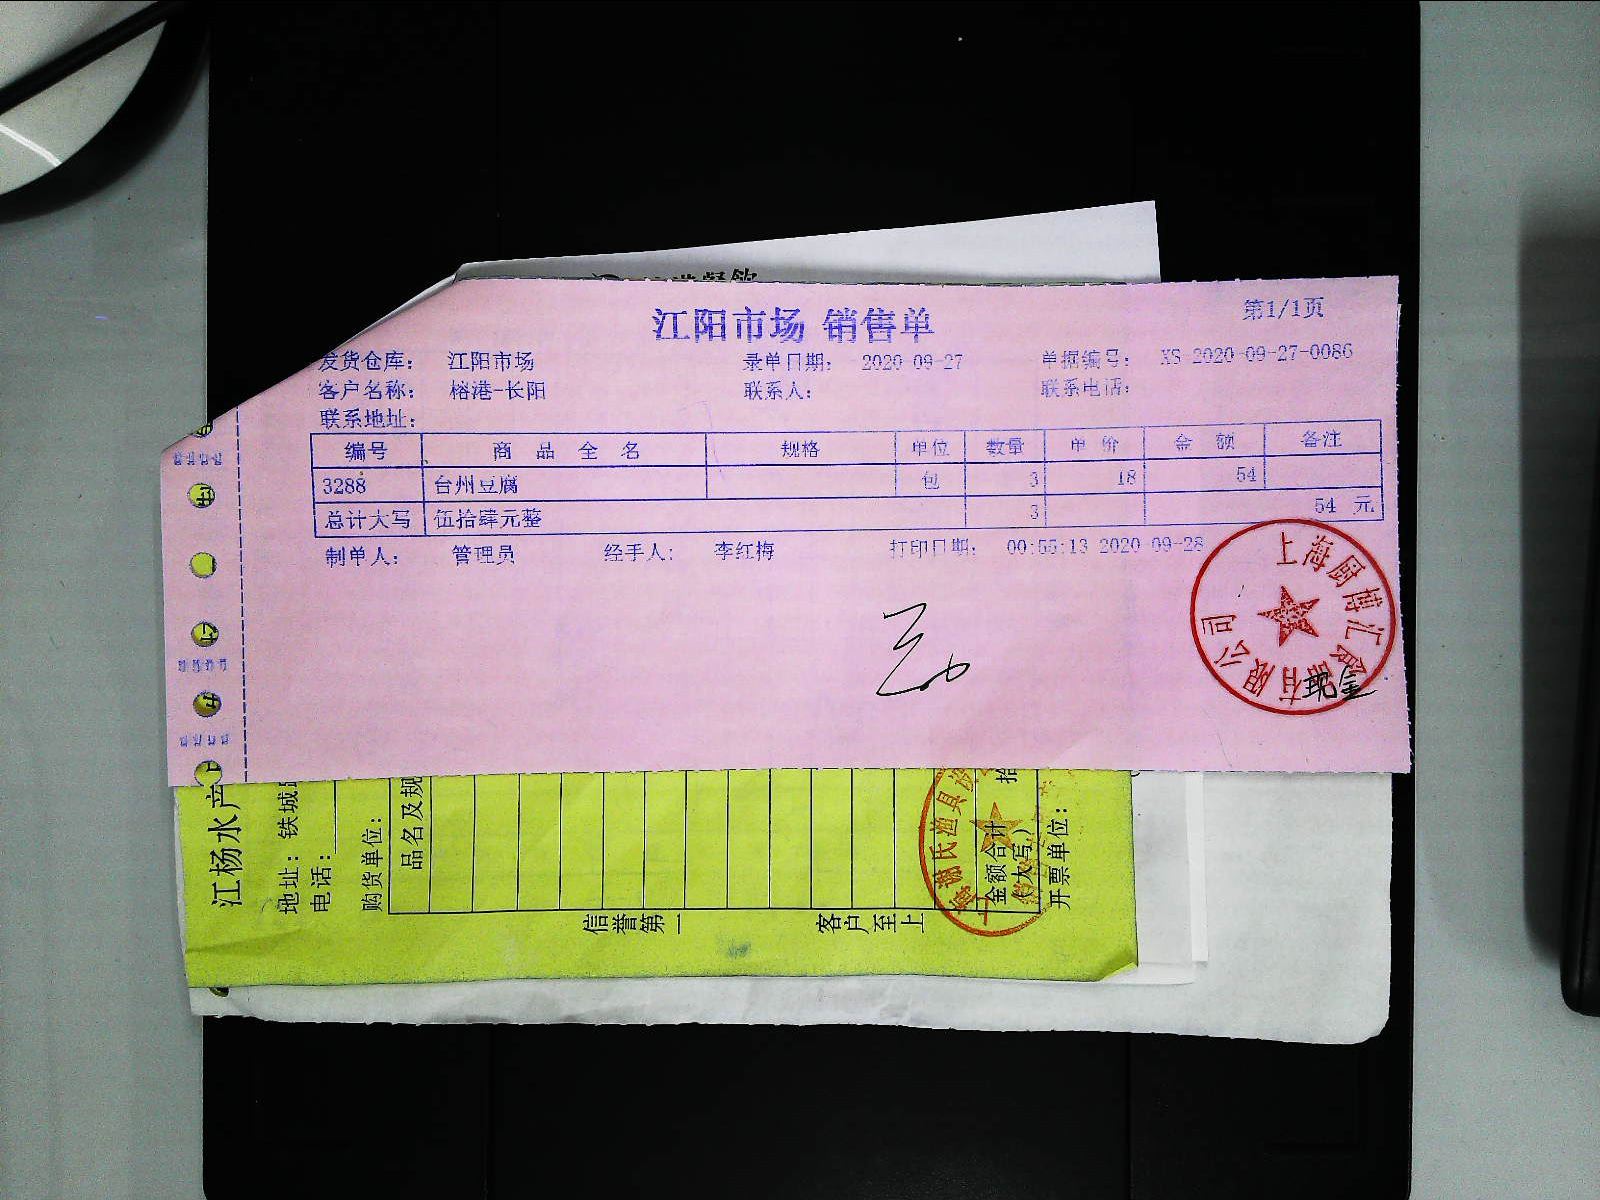 江阳市场 销售单
第1/1页
发货仓库： 江阳市场 录单日期： 2020-09-27 单据编号： XS-2020-09-27-0086
客户名称： 榕港-长阳 联系人： 联系电话：
联系地址：
编号 商品全名 规格 单位 数量 单价 金额 备注
3288 台州豆腐 包 3 18 54
总计大写 伍拾肆元整 3 54 元
制单人： 管理员 经手人： 李红梅 打印日期： 00:55:13 2020-09-28
上海厨博汇食品有限公司
现金
江杨水产
地址： 铁城
电话：
购货单位：
品名及规
信誉第一
客户至上
金额合计
(大写)
拾
开票单位：